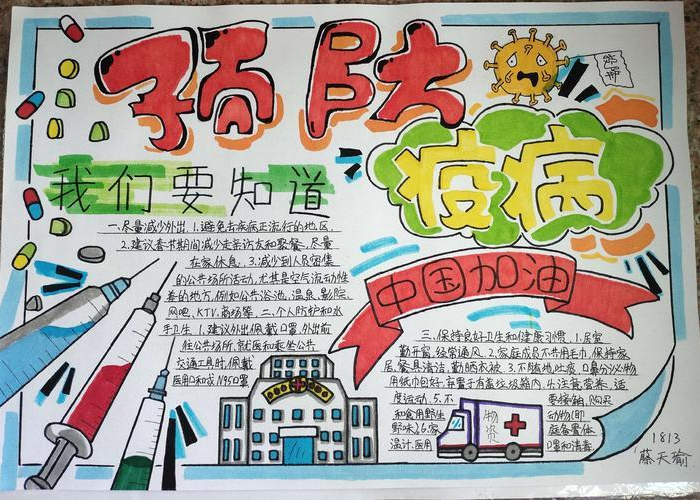 预防
疫病
我们要知道
一.尽量减少外出 1.避免去疾病正流行的地区.
2.建议春书期间减少走亲访友和聚餐,尽量
在家休息. 3.减少到人员密集
的公共场所活动,尤其是空气流动性
差的地方,例如公共浴池、温泉、影院、
网吧、KTV、商场等. 二、个人防护和水
手卫生 1.建议外出佩戴口罩.外出前
往公共场所,就医和乘坐公共
交通工具时,佩戴
医用口和或N95口罩
中国加油
三.保持良好卫生和健康习惯. 1.居室
勤开窗,经常通风. 2.家庭成员不共用毛巾,保持家
居、餐具清洁,勤晒衣被 3.不随地吐痰,口鼻分泌物
用纸巾包好,弃置于有盖垃圾箱内. 4.注意营养,适
度运动. 5.不要接触、购买
和食用野生动物(即
野味)6.家庭备置体
温计.医用口罩和消毒
物资
1813
藤天瑜